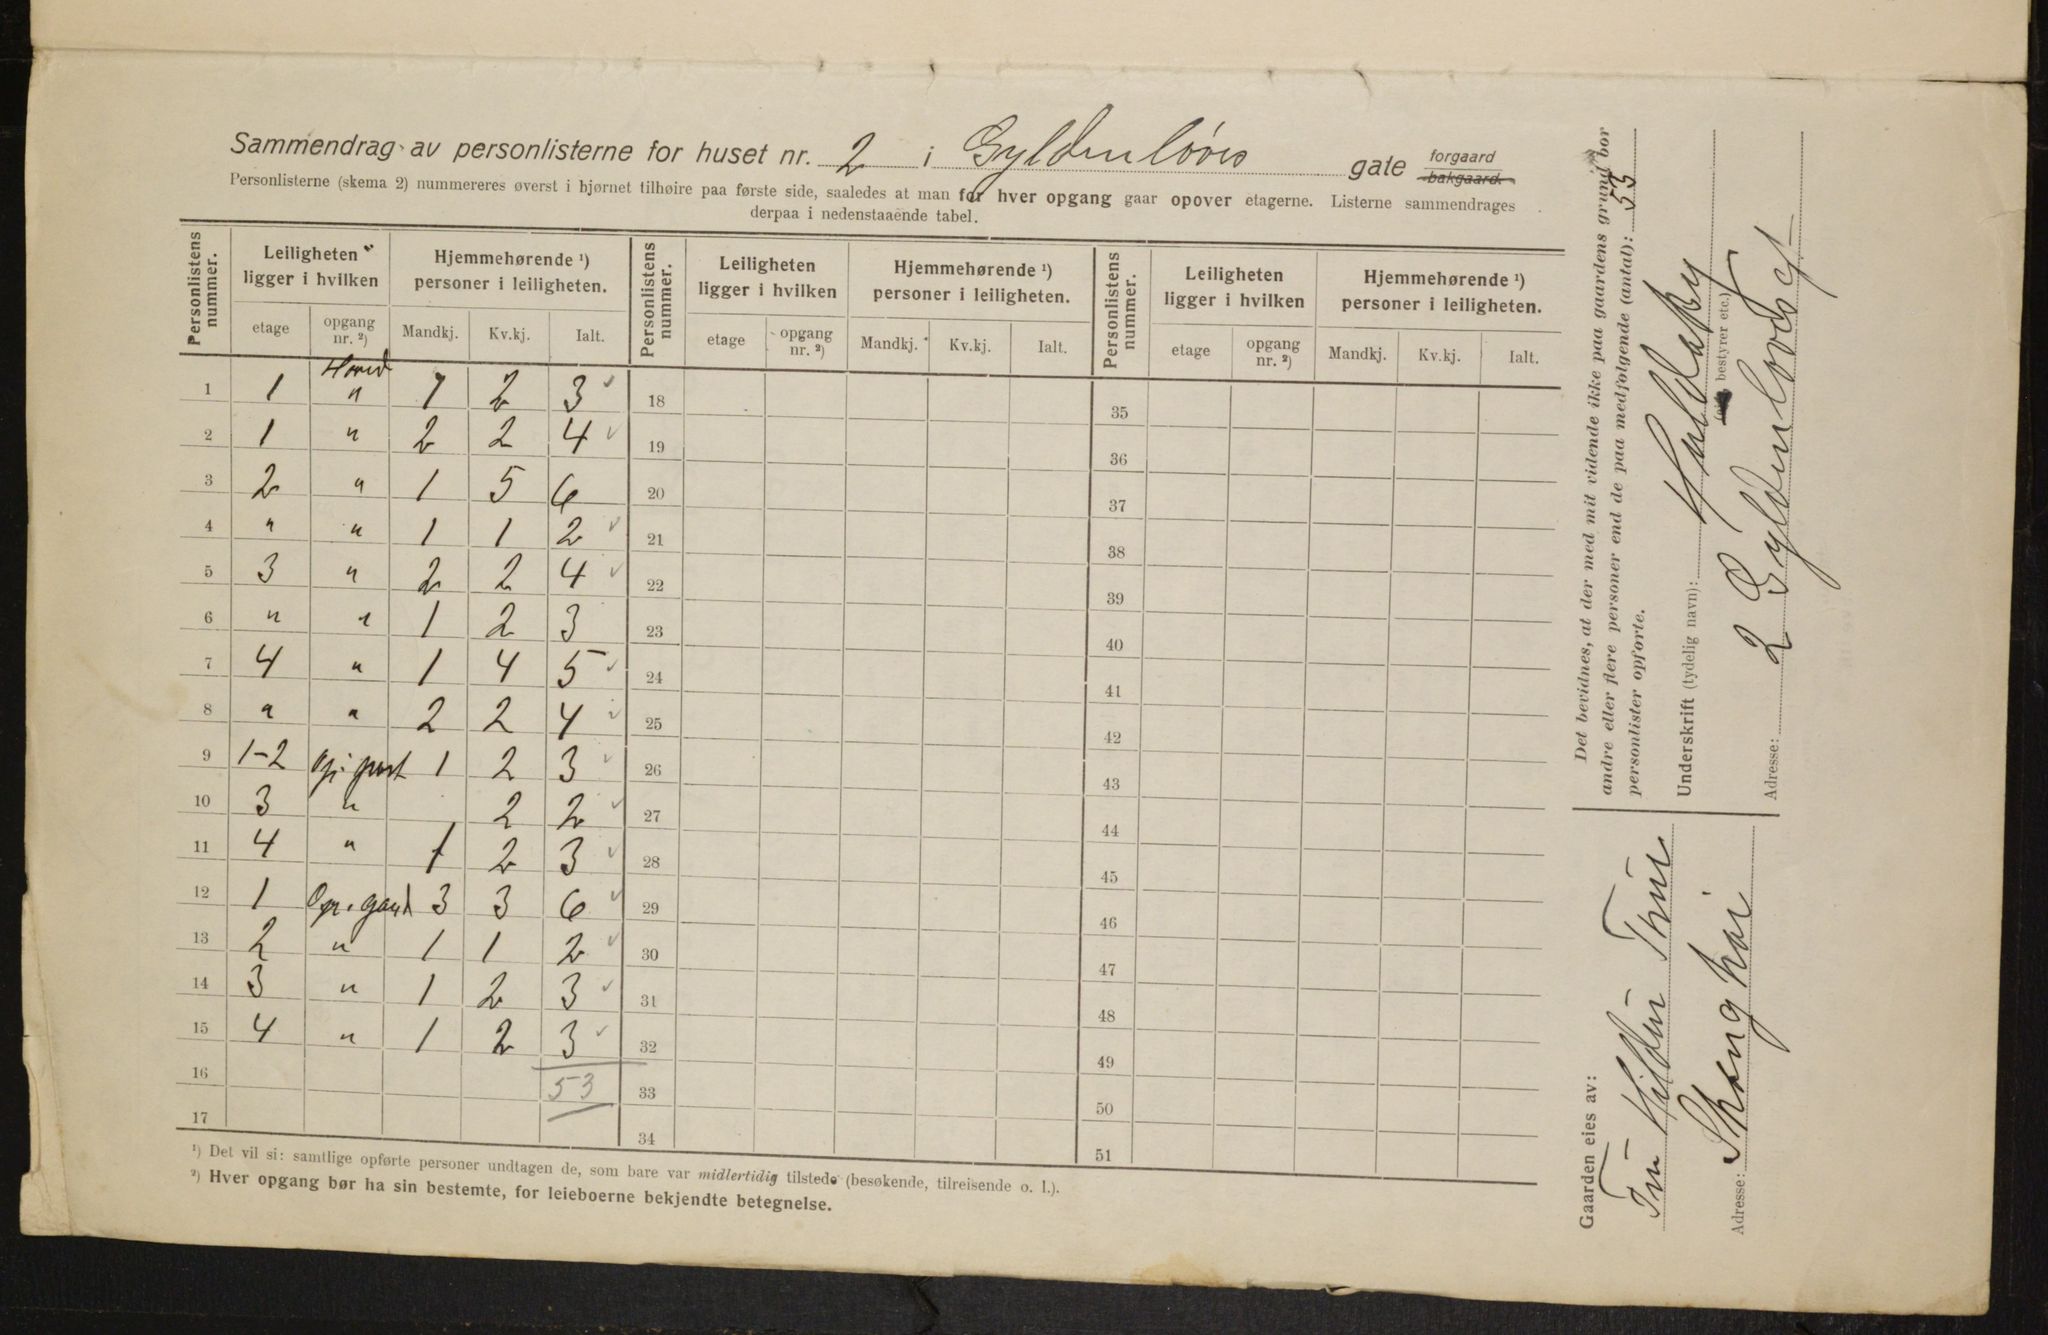 Sammendrag av personlisterne for huset nr. 2 i Gyldenløves gate forgaard
bakgaard.
Personlisterne (skema 2) nummereres øverst i hjørnet tilhøire paa første side, saaledes at man for hver opgang gaar opover etagerne. Listerne sammendrages
derpaa i nedenstaaende tabel.
Personlistens nummer. Leiligheten ligger i hvilken Hjemmehørende ¹) personer i leiligheten. Personlistens nummer. Leiligheten ligger i hvilken Hjemmehørende ¹) personer i leiligheten. Personlistens nummer. Leiligheten ligger i hvilken Hjemmehørende ¹) personer i leiligheten.
etage opgang nr. ²) Mandkj. Kv.kj. Ialt. etage opgang nr. ²) Mandkj. Kv.kj. Ialt. etage opgang nr. ²) Mandkj. Kv.kj. Ialt.
Hoved
1 1 " 1 2 3 ✓ 18 35
2 1 " 2 2 4 ✓ 19 36
3 2 " 1 5 6 20 37
4 " " 1 1 2 ✓ 21 38
5 3 " 2 2 4 ✓ 22 39
6 " " 1 2 3 23 40
7 4 " 1 4 5 ✓ 24 41
8 " " 2 2 4 ✓ 25 42
9 1-2 Op. port 1 2 3 ✓ 26 43
10 3 " 2 2 ✓ 27 44
11 4 " 1 2 3 ✓ 28 45
12 1 Op. gaard 3 3 6 ✓ 29 46
13 2 " 1 1 2 ✓ 30 47
14 3 " 1 2 3 ✓ 31 48
15 4 " 1 2 3 ✓ 32 49
16 53 33 50
17 34 51
¹) Det vil si: samtlige opførte personer undtagen de, som bare var midlertidig tilstede (besøkende, tilreisende o. l.).
²) Hver opgang bør ha sin bestemte, for leieboerne bekjendte betegnelse.
Det bevidnes, at der med mit vidende ikke paa gaardens grund bor
andre eller flere personer end de paa medfølgende (antal): 53
personlister opførte.
Underskrift (tydelig navn):
bestyrer etc.)
Adresse: 2 Gyldenløvesgt
Gaarden eies av:
Adresse: Shanghai